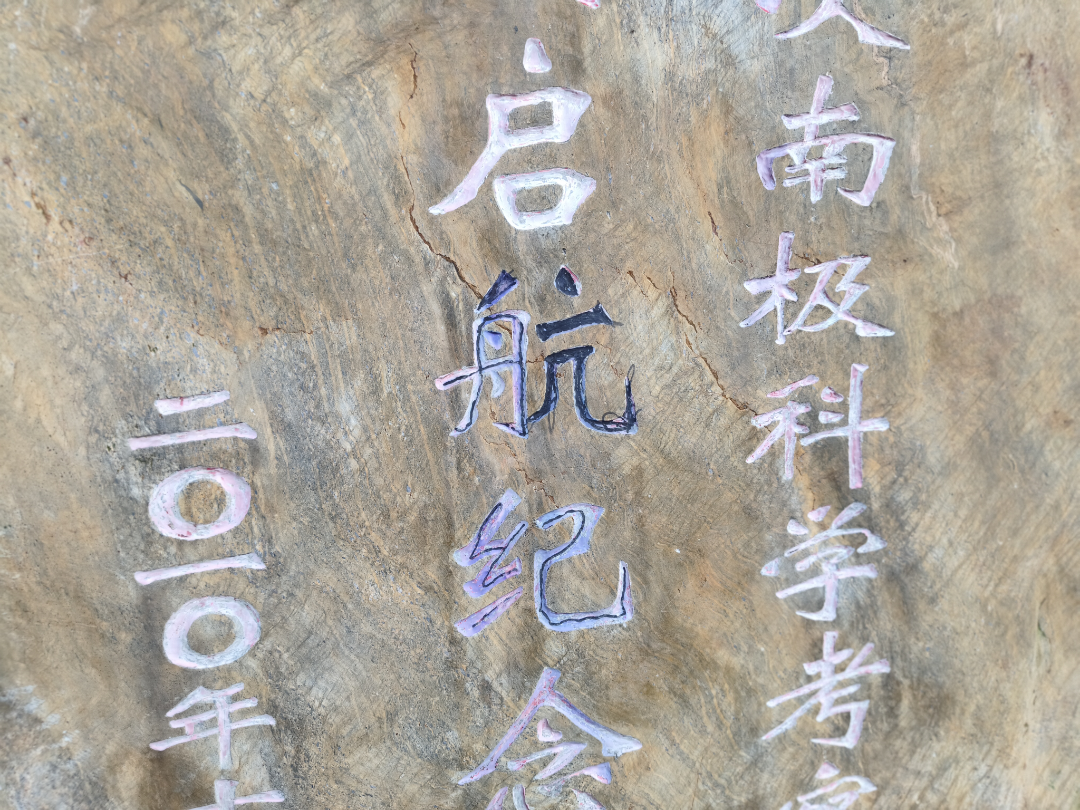 南极科学考
启航纪念
二〇一〇年十